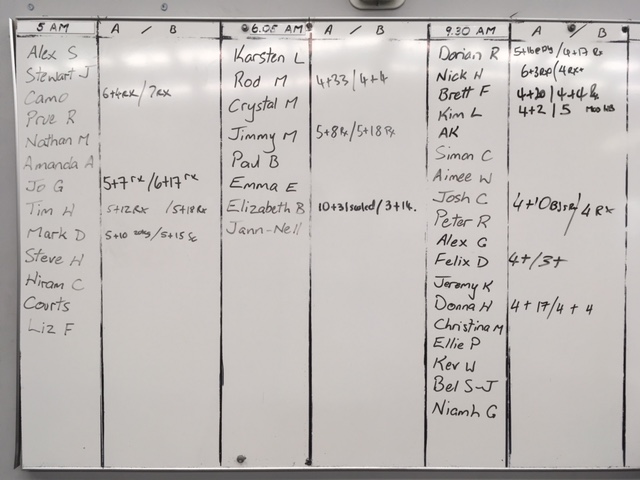 5 AM A / B
Alex S
Stewart J
Camo 6+4RX/7RX
Prue R
Nathan M
Amanda A
Jo G 5+7 rx/6+17 rx
Tim H 5+12Rx /5+18Rx
Mark D 5+10 /5+15
Steve H
Hiram C
Courts
Liz F
6.05 AM A / B
Karsten L
Rod M 4+33/4+4
Crystal M
Jimmy M 5+8 Rx/5+18 Rx
Paul B
Emma E
Elizabeth B 10+31 scaled/3+14.
Jann-Nell
9.30 AM A / B
Dorian R /4+17 Rx
Nick H 6+3RX/4RX+
Brett F 4+20/4+4
Kim L 4+2/5
AK
Simon C
Aimee W
Josh C 4+10 /4 Rx
Peter R
Alex G
Felix D 4+/3+
Jeremy K
Donna H 4+17/4+4
Christina M
Ellie P
Kev W
Bel S-J
Niamh G